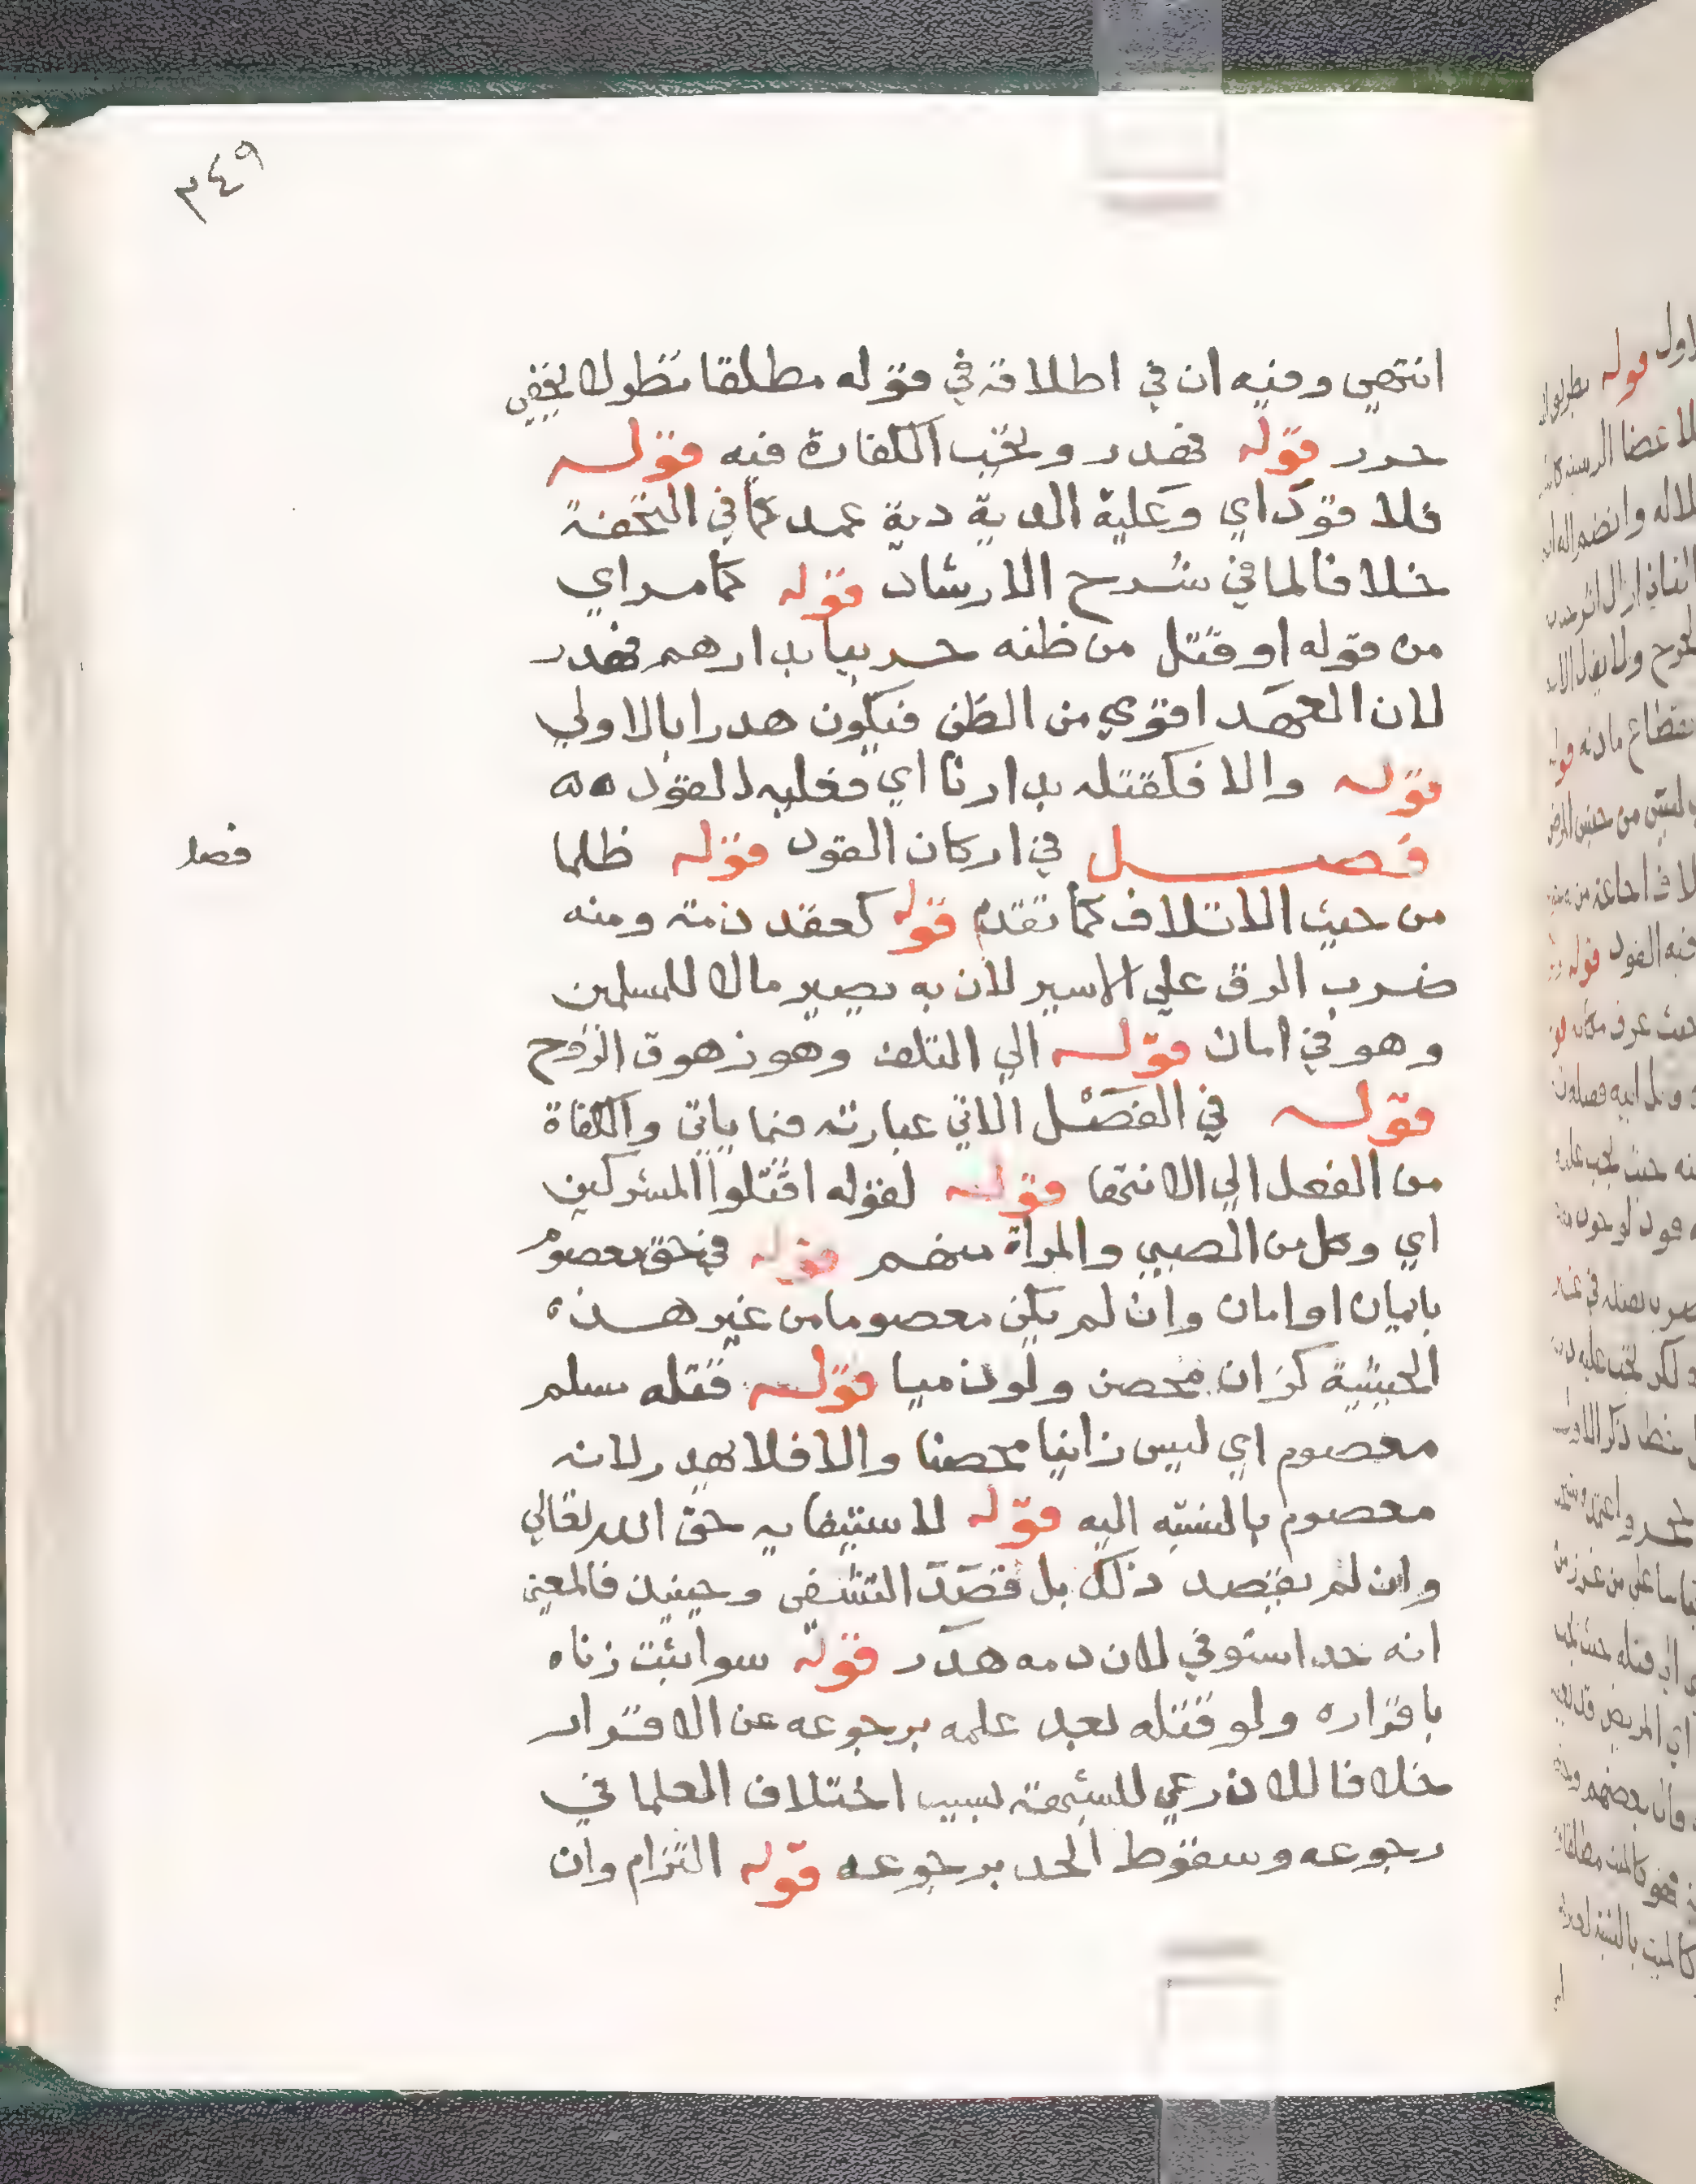 ٣٤٩
انتهي وفيه ان في اطلاقه في قوله مطلقا نظر لا يخفي
حرر قوله فهدر وتجب الكفارة فيه قوله
فلا قود اي وعلية الدية دية عمد كما في التحفة
خلافا لما في شرح الارشاد قوله كما مر اي
من قوله او قتل من ظنه حربيا بدارهم فهدر
لان العهد اقوي من الظن فيكون هدرا بالاولي
قوله والا فكقتله بدارنا اي فعليه القود
فصل في اركان القود قوله ظلما
فصل
من حيث الاتلاف كما تقدم قوله كعقد ذمة ومنه
ضرب الرق علي الاسير لان به يصير مالا للمسلمين
وهو في امان قوله الي التلف وهو زهوق الروح
قوله في الفصل الاتي عبارته فيما ياتي والكفاة
من الفعل الي الانتها قوله لقوله اقتلوا المشركين
اي وكل من الصبي والمراة منهم قوله في حق معصوم
بايمان او امان وان لم يكن معصوما من غير هذه
الحيثية كزان محصن ولو ذميا قوله قتله مسلم
معصوم اي ليس زانيا محصنا والا فلا يهدر لانه
معصوم بالنسبة اليه قوله لاستيفايه حق الله تعالي
وان لم يقصد ذلك بل قصد التشفي وحينيذ فالمعني
انه حد استوفي لان دمه هدر قوله سوا ثبت زناه
باقراره ولو قتله بعد علمه برجوعه عن الاقرار
خلافا للاذرعي للشبهة بسبب اختلاف العلما في
رجوعه وسقوط الحد برجوعه قوله التزام وان